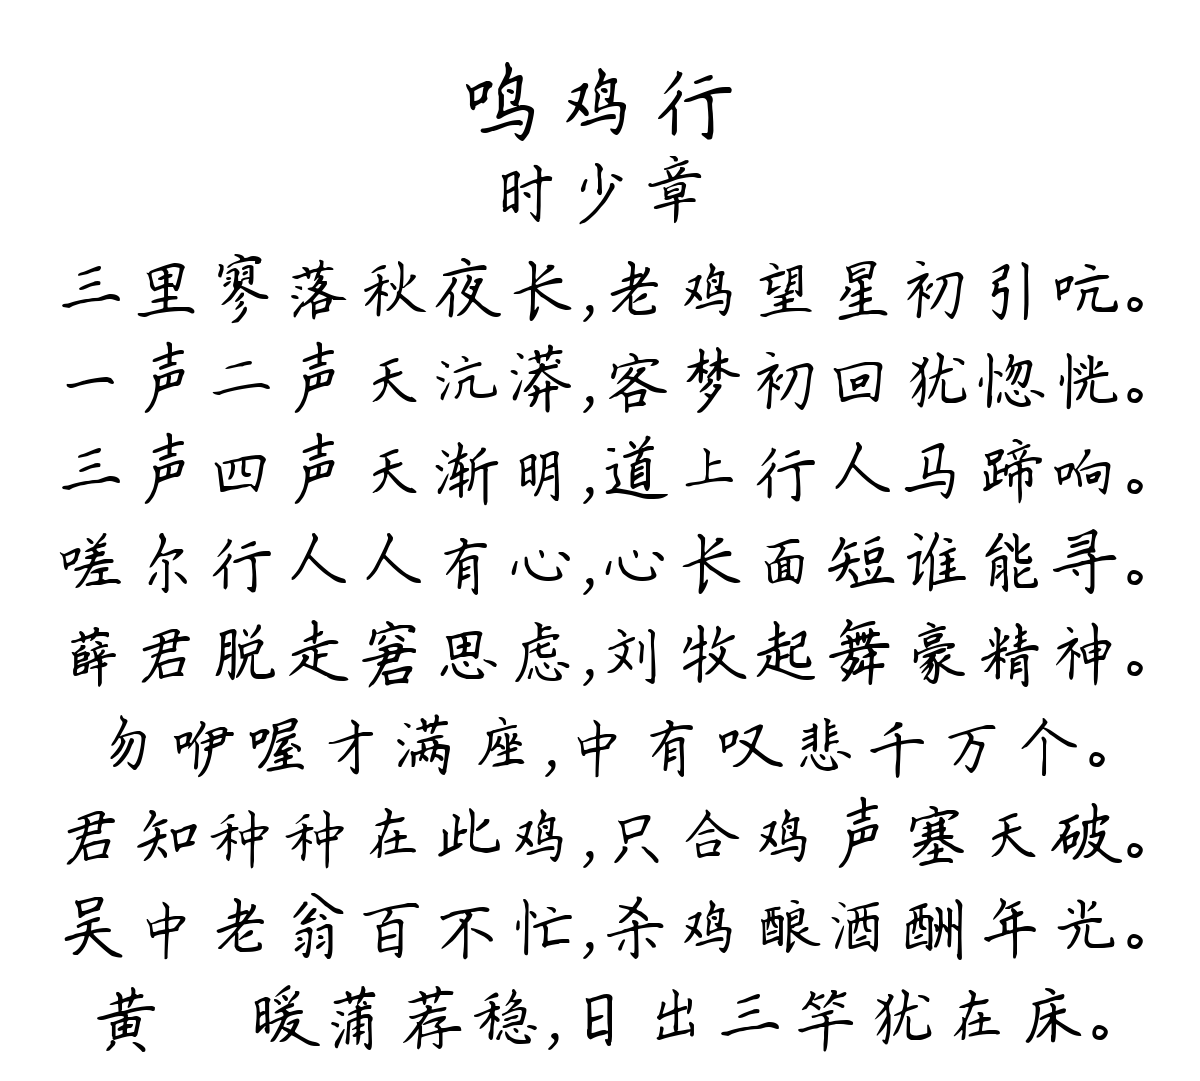 鸣鸡行
时少章
三里寥落秋夜长,老鸡望星初引吭。
一声二声天沆漭,客梦初回犹惚恍。
三声四声天渐明,道上行人马蹄响。
嗟尔行人人有心,心长面短谁能寻。
薛君脱走窘思虑,刘牧起舞豪精神。
勿咿喔才满座,中有叹悲千万个。
君知种种在此鸡,只合鸡声塞天破。
吴中老翁百不忙,杀鸡酿酒酬年光。
黄 暖蒲荐稳,日出三竿犹在床。